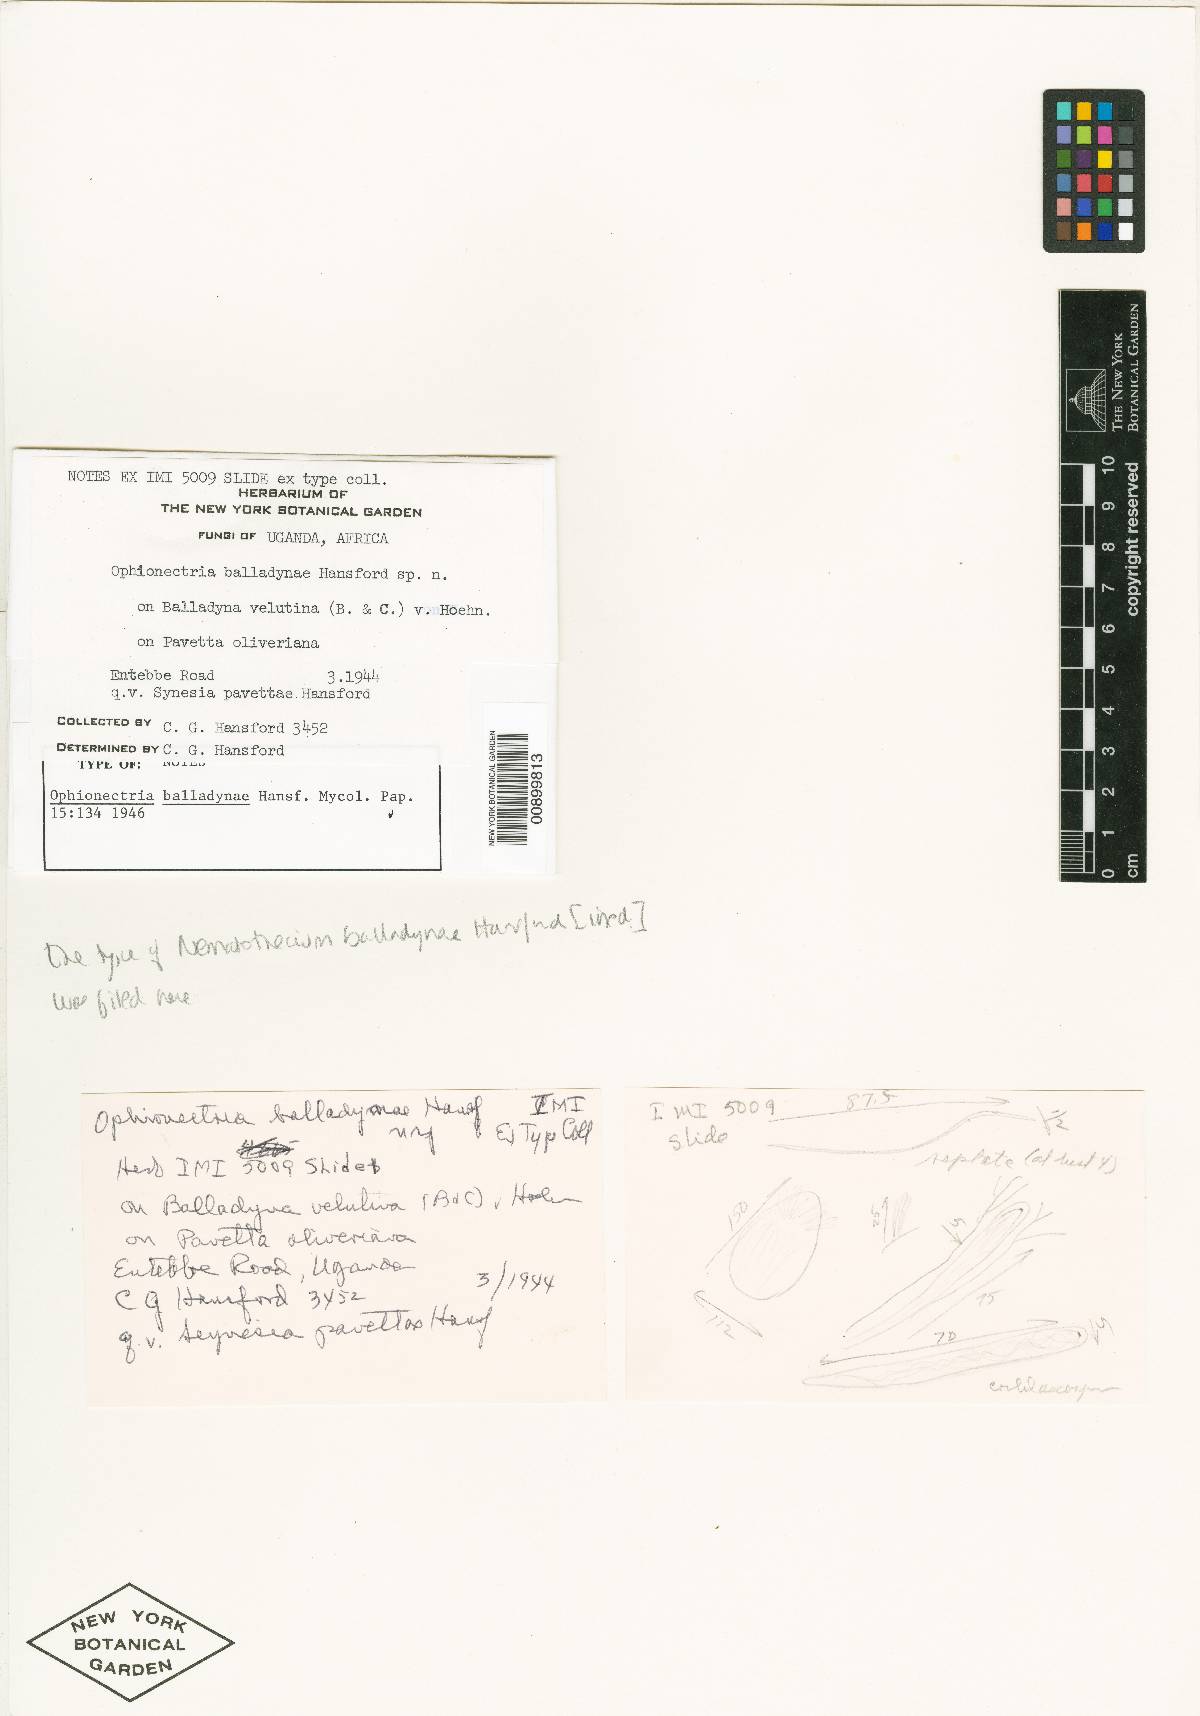 NOTES EX IMI 5009 SLIDE ex type coll.
HERBARIUM OF
THE NEW YORK BOTANICAL GARDEN
FUNGI OF UGANDA, AFRICA
Ophionectria balladynae Hansford sp. n.
on Balladyna velutina (B. & C.) v. Hoehn.
on Pavetta oliveriana
Entebbe Road 3.1944
q.v. Synesia pavettae Hansford
COLLECTED BY C. G. Hansford 3452
DETERMINED BY C. G. Hansford
TYPE OF: NOTES
Ophionectria balladynae Hansf. Mycol. Pap.
15:134 1946
NEW YORK BOTANICAL GARDEN
00899813
THE NEW YORK
BOTANICAL GARDEN
copyright reserved
10 9 8 7 6 5 4 3 2 1 0
cm
The type of Nematothecium balladynae Hansford [ined.]
was filed here
Ophionectria balladynae Hansf IMI
Ex Type Coll
Herb IMI 5009 Slide
on Balladyna velutina (B&C) v Hoehn
on Pavetta oliveriana
Entebbe Road, Uganda
3/1944
C G Hansford 3452
q.v. Seynesia pavettae Hansf
IMI 5009
Slide
87.5
2
septate (at least 4)
150
112
25
15
75
70
15
NEW YORK
BOTANICAL
GARDEN